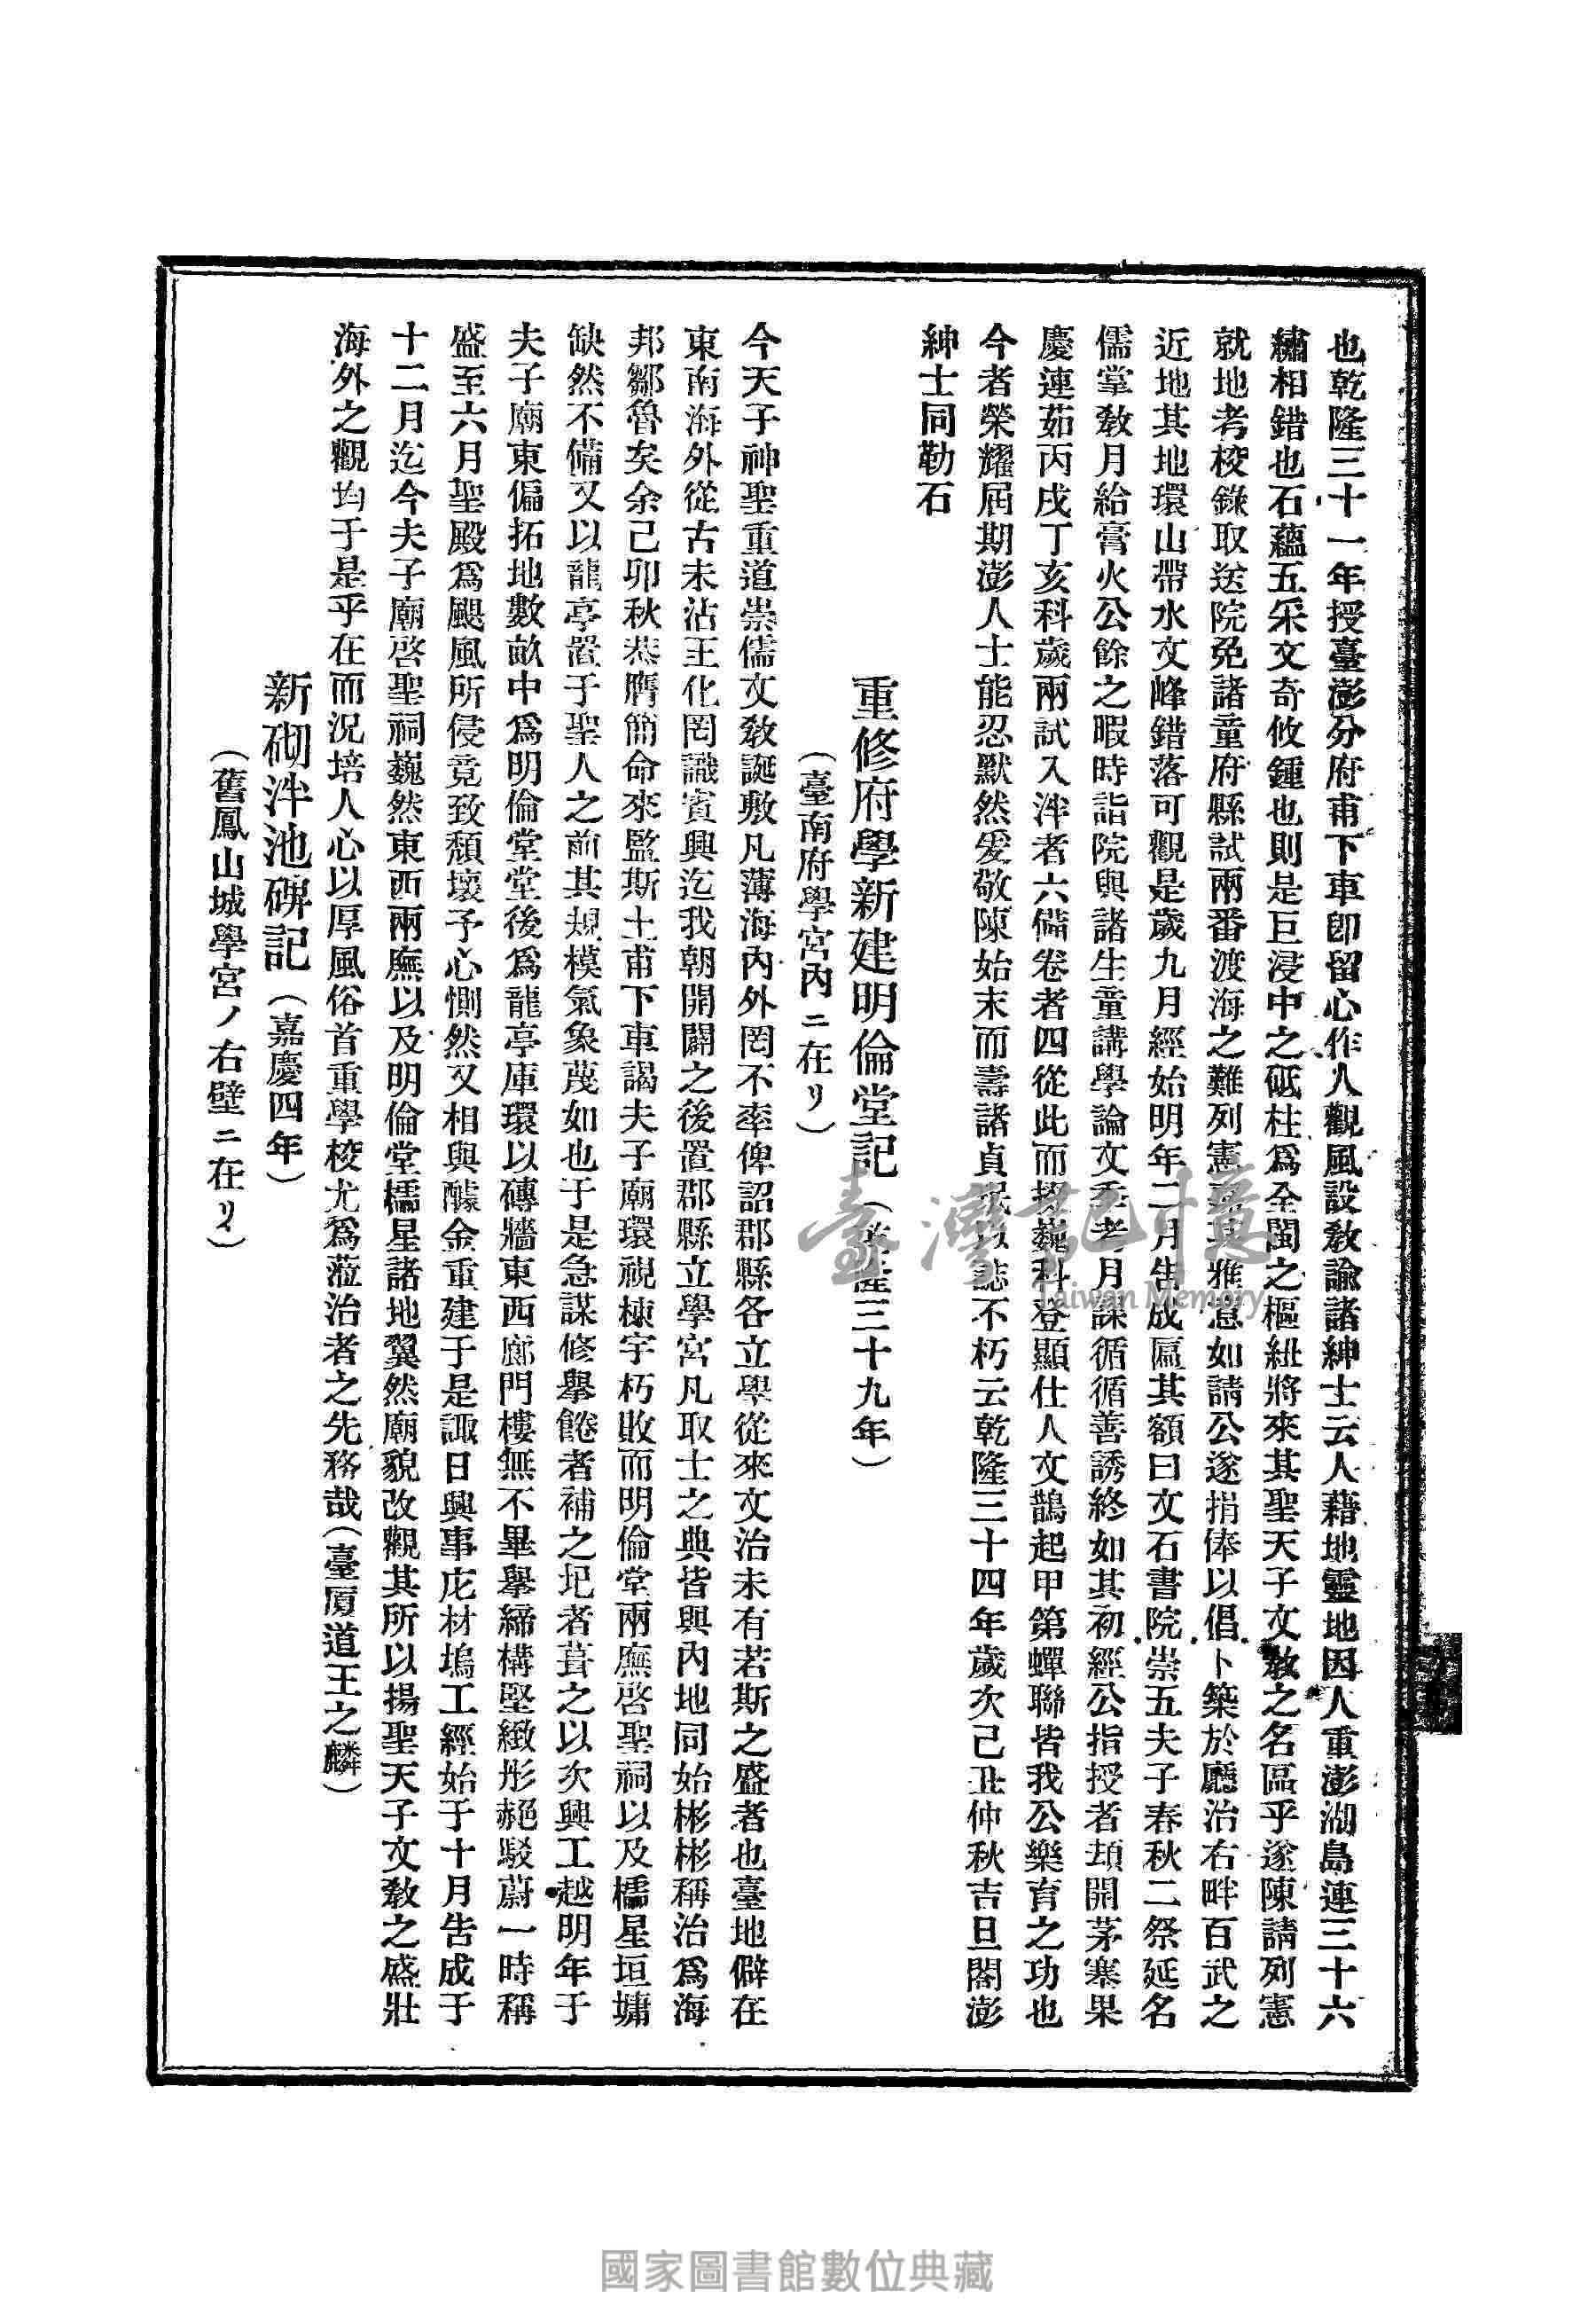 也乾隆三十一年授臺澎分府甫下車卽留心作人觀風設敎諭諸紳士云人藉地靈地因人重澎湖島連三十六
繡相錯也石蘊五采文奇攸鍾也則是巨浸中之砥柱爲全閩之樞紐將來其聖天子文敎之名區乎遂陳請列憲
就地考校錄取送院免諸童府縣試兩番渡海之難列憲其雅意如請公遂捐俸以倡卜築於廳治右畔百武之
近地其地環山帶水文峰錯落可觀是歲九月經始明年二月告成匾其額曰文石書院崇五夫子春秋二祭延名
儒掌敎月給膏火公餘之暇時詣院與諸生童講學論文季考月課循循善誘終如其初經公指授者頓開茅塞果
慶連茹丙戌丁亥科歲兩試入泮者六備卷者四從此而掇巍科登顯仕人文鵲起甲第蟬聯皆我公樂育之功也
今者榮耀屆期澎人士能忍默然爰敬陳始末而壽諸貞珉以誌不朽云乾隆三十四年歲次己丑仲秋吉旦閤澎
紳士同勒石
重修府學新建明倫堂記（乾隆三十九年）
（臺南府學宮內ニ在リ）
今天子神聖重道崇儒文敎誕敷凡薄海內外罔不率俾詔郡縣各立學從來文治未有若斯之盛者也臺地僻在
東南海外從古未沾王化罔識賓興迄我朝開闢之後置郡縣立學宮凡取士之典皆與內地同始彬彬稱治爲海
邦鄒魯矣余己卯秋恭膺簡命來監斯土甫下車謁夫子廟環視棟宇朽敗而明倫堂兩廡啓聖祠以及櫺星垣墉
缺然不備又以龍亭置于聖人之前其規模氣象蔑如也于是急謀修舉餘者補之圮者葺之以次興工越明年于
夫子廟東偏拓地數畝中爲明倫堂堂後爲龍亭庫環以磚牆東西廊門樓無不畢舉締構堅緻彤赩駁蔚一時稱
盛至六月聖殿爲颶風所侵竟致頹壞予心惻然又相與醵金重建于是諏日興事庀材塢工經始于十月告成于
十二月迄今夫子廟啓聖祠巍然東西兩廡以及明倫堂櫺星諸地翼然廟貌改觀其所以揚聖天子文敎之盛壯
海外之觀均于是乎在而況培人心以厚風俗首重學校尤爲蒞治者之先務哉（臺厦道王之麟）
新砌泮池碑記（嘉慶四年）
（舊鳳山城學宮ノ右壁ニ在リ）
臺灣記憶
Taiwan Memory
國家圖書館數位典藏